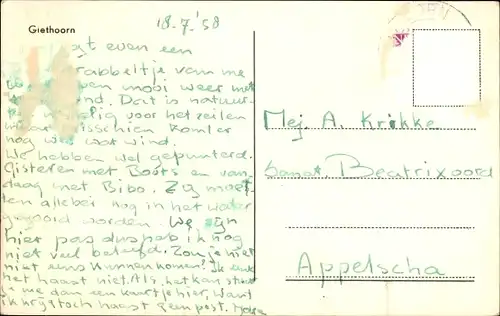 Giethoorn
18-7-'58
even een
krabbeltje van me
mooi weer met
wind. Dat is natuur-
voor het zeilen
misschien komt er
nog wel wat wind.
We hebben wel gepunterd.
Gisteren met Boots en van-
daag met Bibo. Zij moes-
ten allebei nog in het water
gegooid worden. We zijn
hier pas dus heb ik nog
niet veel beleefd. Zou je hier
niet eens kunnen komen? Ik
het haast niet. Als het kan stuur
je me dan een kaartje hier, want
ik krijg toch haast geen post.
Mej. A. Krikke
Sanat. Beatrixoord
Appelscha